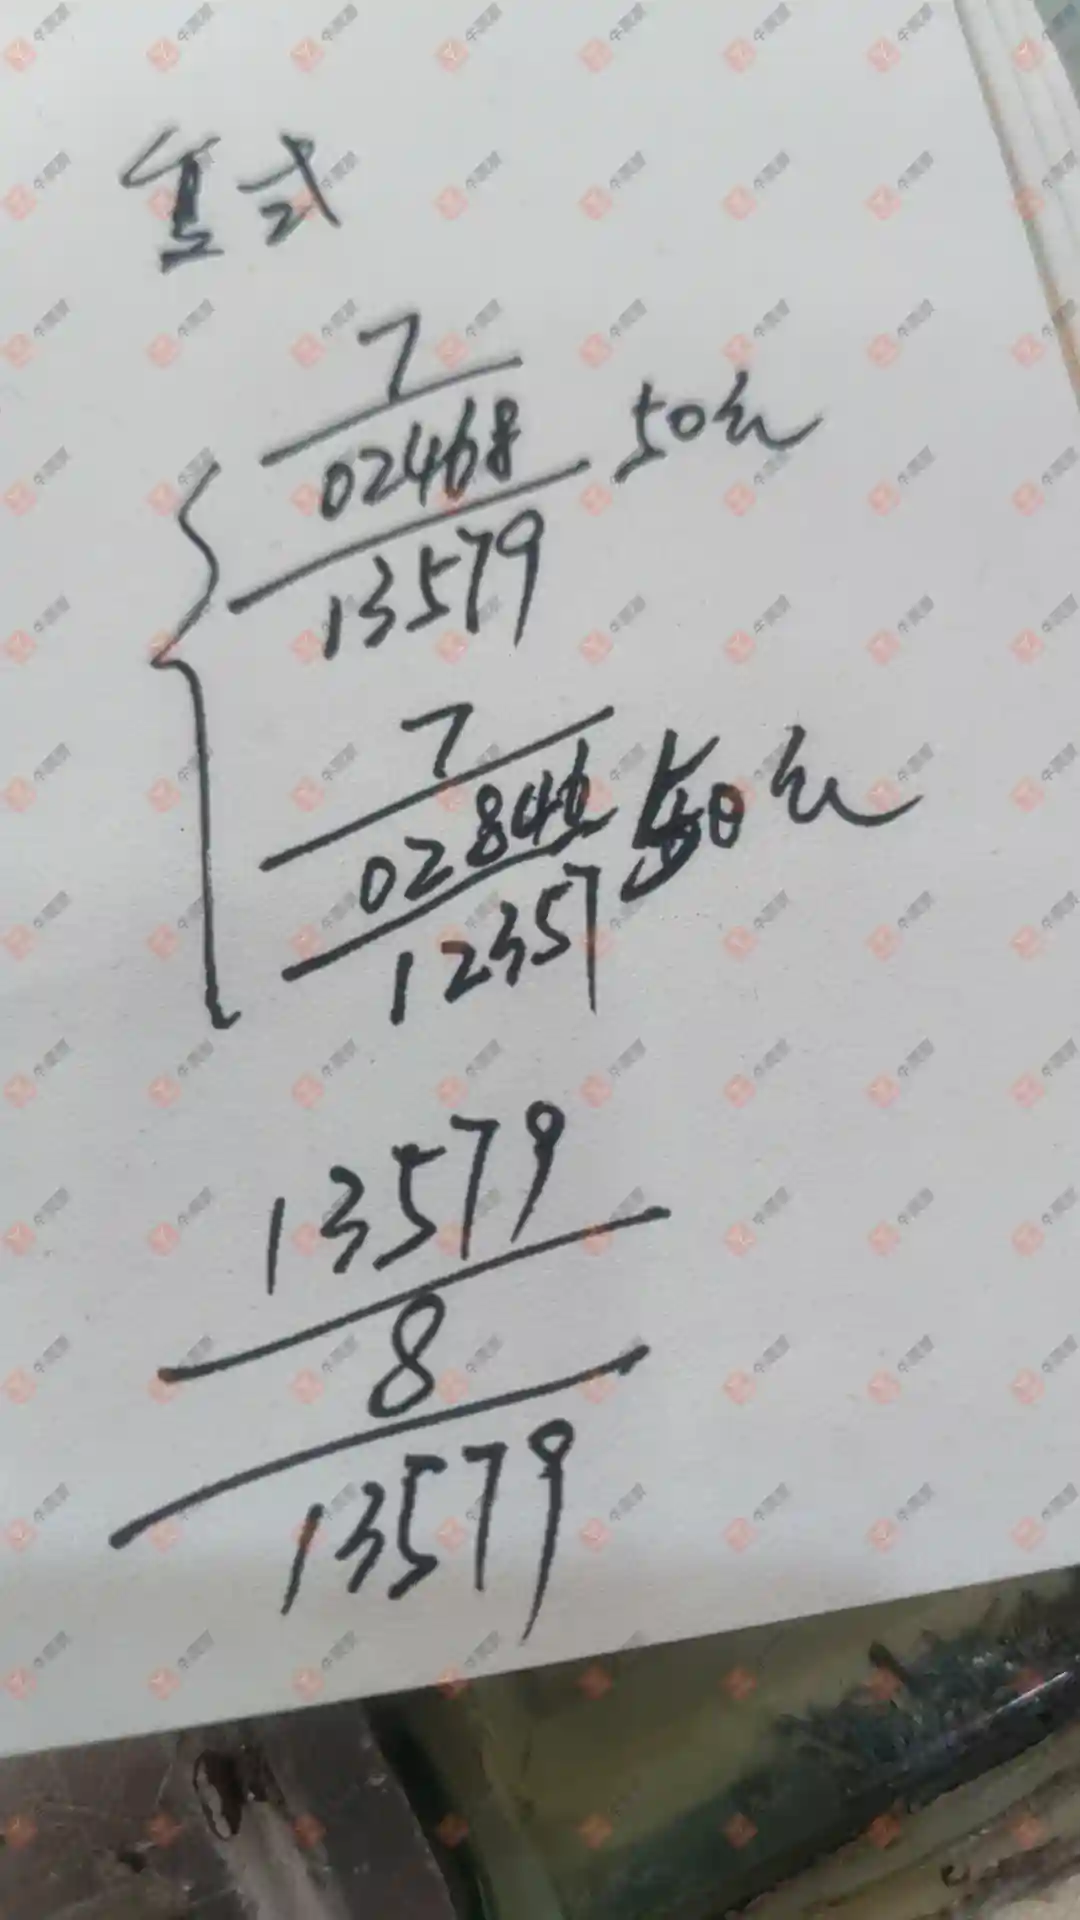 直式
7
02468 50元
13579
7
02846 50元
12357
13579
8
13579